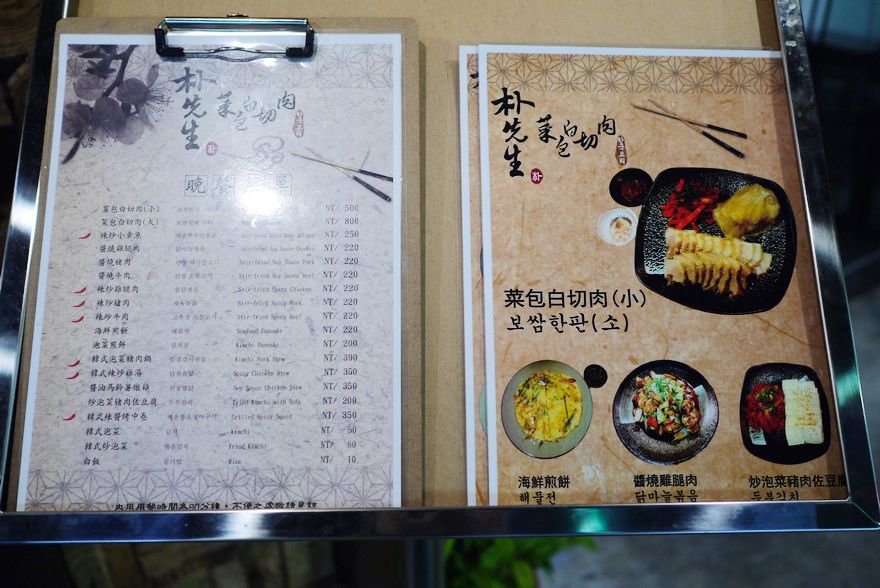 朴先生
菜包白切肉
晚
菜包白切肉(小) NT/ 500
菜包白切肉(大) NT/ 800
辣炒小章魚 Stir-fried Spicy NT/ 250
醬燒雞腿肉 Stir-fried Soy Sauce Chicken NT/ 220
醬燒豬肉 Stir-fried Soy Sauce Pork NT/ 220
醬燒牛肉 Stir-fried Soy Sauce Beef NT/ 220
辣炒雞腿肉 Stir-fried Spicy Chicken NT/ 220
辣炒豬肉 제육볶음 Stir-fried Spicy Pork NT/ 220
辣炒牛肉 Stir-fried Spicy Beef NT/ 220
海鮮煎餅 해물전 Seafood Pancake NT/ 220
泡菜煎餅 김치전 Kimchi Pancake NT/ 200
韓式泡菜豬肉鍋 Kimchi Pork Stew NT/ 390
韓式辣炒雞湯 Spicy Chicken Stew NT/ 350
醬油馬鈴薯燉雞 Soy Sauce Chicken Stew NT/ 350
炒泡菜豬肉佐豆腐 두부김치 Fried Kimchi with Tofu NT/ 200
韓式辣醬烤中卷 Grilled Spicy Squid NT/ 350
韓式泡菜 김치 Kimchi NT/ 50
韓式炒泡菜 볶음김치 Fried Kimchi NT/ 60
白飯 공기밥 Rice NT/ 10
內用用餐時間為90分鐘，不便之處敬請見諒
朴先生
菜包白切肉
朴
菜包白切肉(小)
보쌈한판(소)
海鮮煎餅
해물전
醬燒雞腿肉
닭마늘볶음
炒泡菜豬肉佐豆腐
두부김치